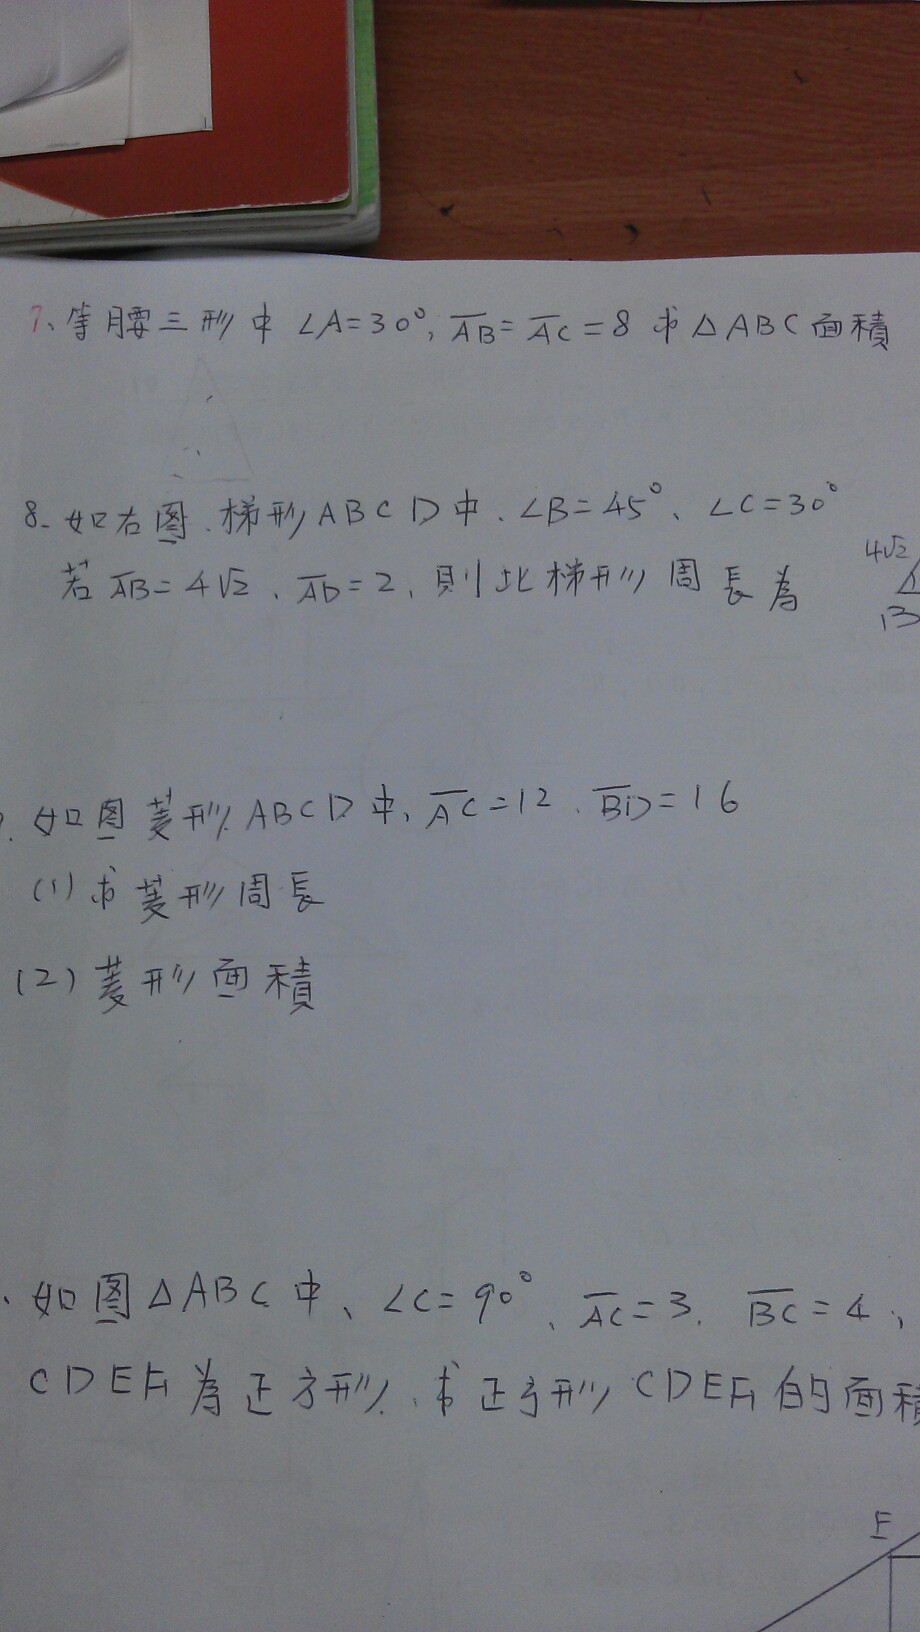 7、等腰三形中 ∠A=30°, AB=AC=8 求△ABC面積
8. 如右图、梯形ABCD中、∠B=45°、∠C=30°
4√2
若AB=4√2、AD=2, 則此梯形周長為
B
如图菱形ABCD中, AC=12、BD=16
(1) 求菱形周長
(2) 菱形面積
、如图△ABC中、∠C=90°、AC=3. BC=4、
CDEF為正方形, 求正方形CDEF的面積
E